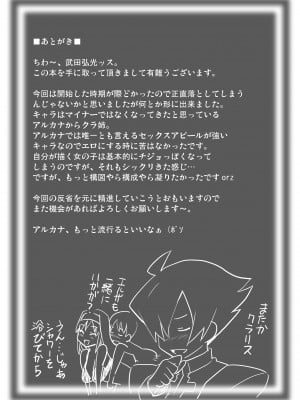 ■あとがき■
ちわ～、武田弘光ッス。
この本を手に取って頂きまして有難うございます。
今回は開始した時期が際どかったので正直落としてしまう
んじゃないかと思いましたが何とか形に出来ました。
キャラはマイナーではなくなってきたと思っている
アルカナからクラ姉。
アルカナでは唯一とも言えるセックスアピールが強い
キャラなのでエロにする時に苦はなかったです。
自分が描く女の子は基本的にチジョっぽくなって
しまうのですが、それもシックリきた感じ…
ですが、もっと構図やら構成やら凝りたかったです orz
今回の反省を元に精進していこうとおもいますので
また機会があればよろしくお願いします～。
アルカナ、もっと流行るといいなぁ（ﾎﾞｿ
またか
クラリス
エルザも
一緒に
いかが？
うん…じゃあ
シャワーを
浴びてから